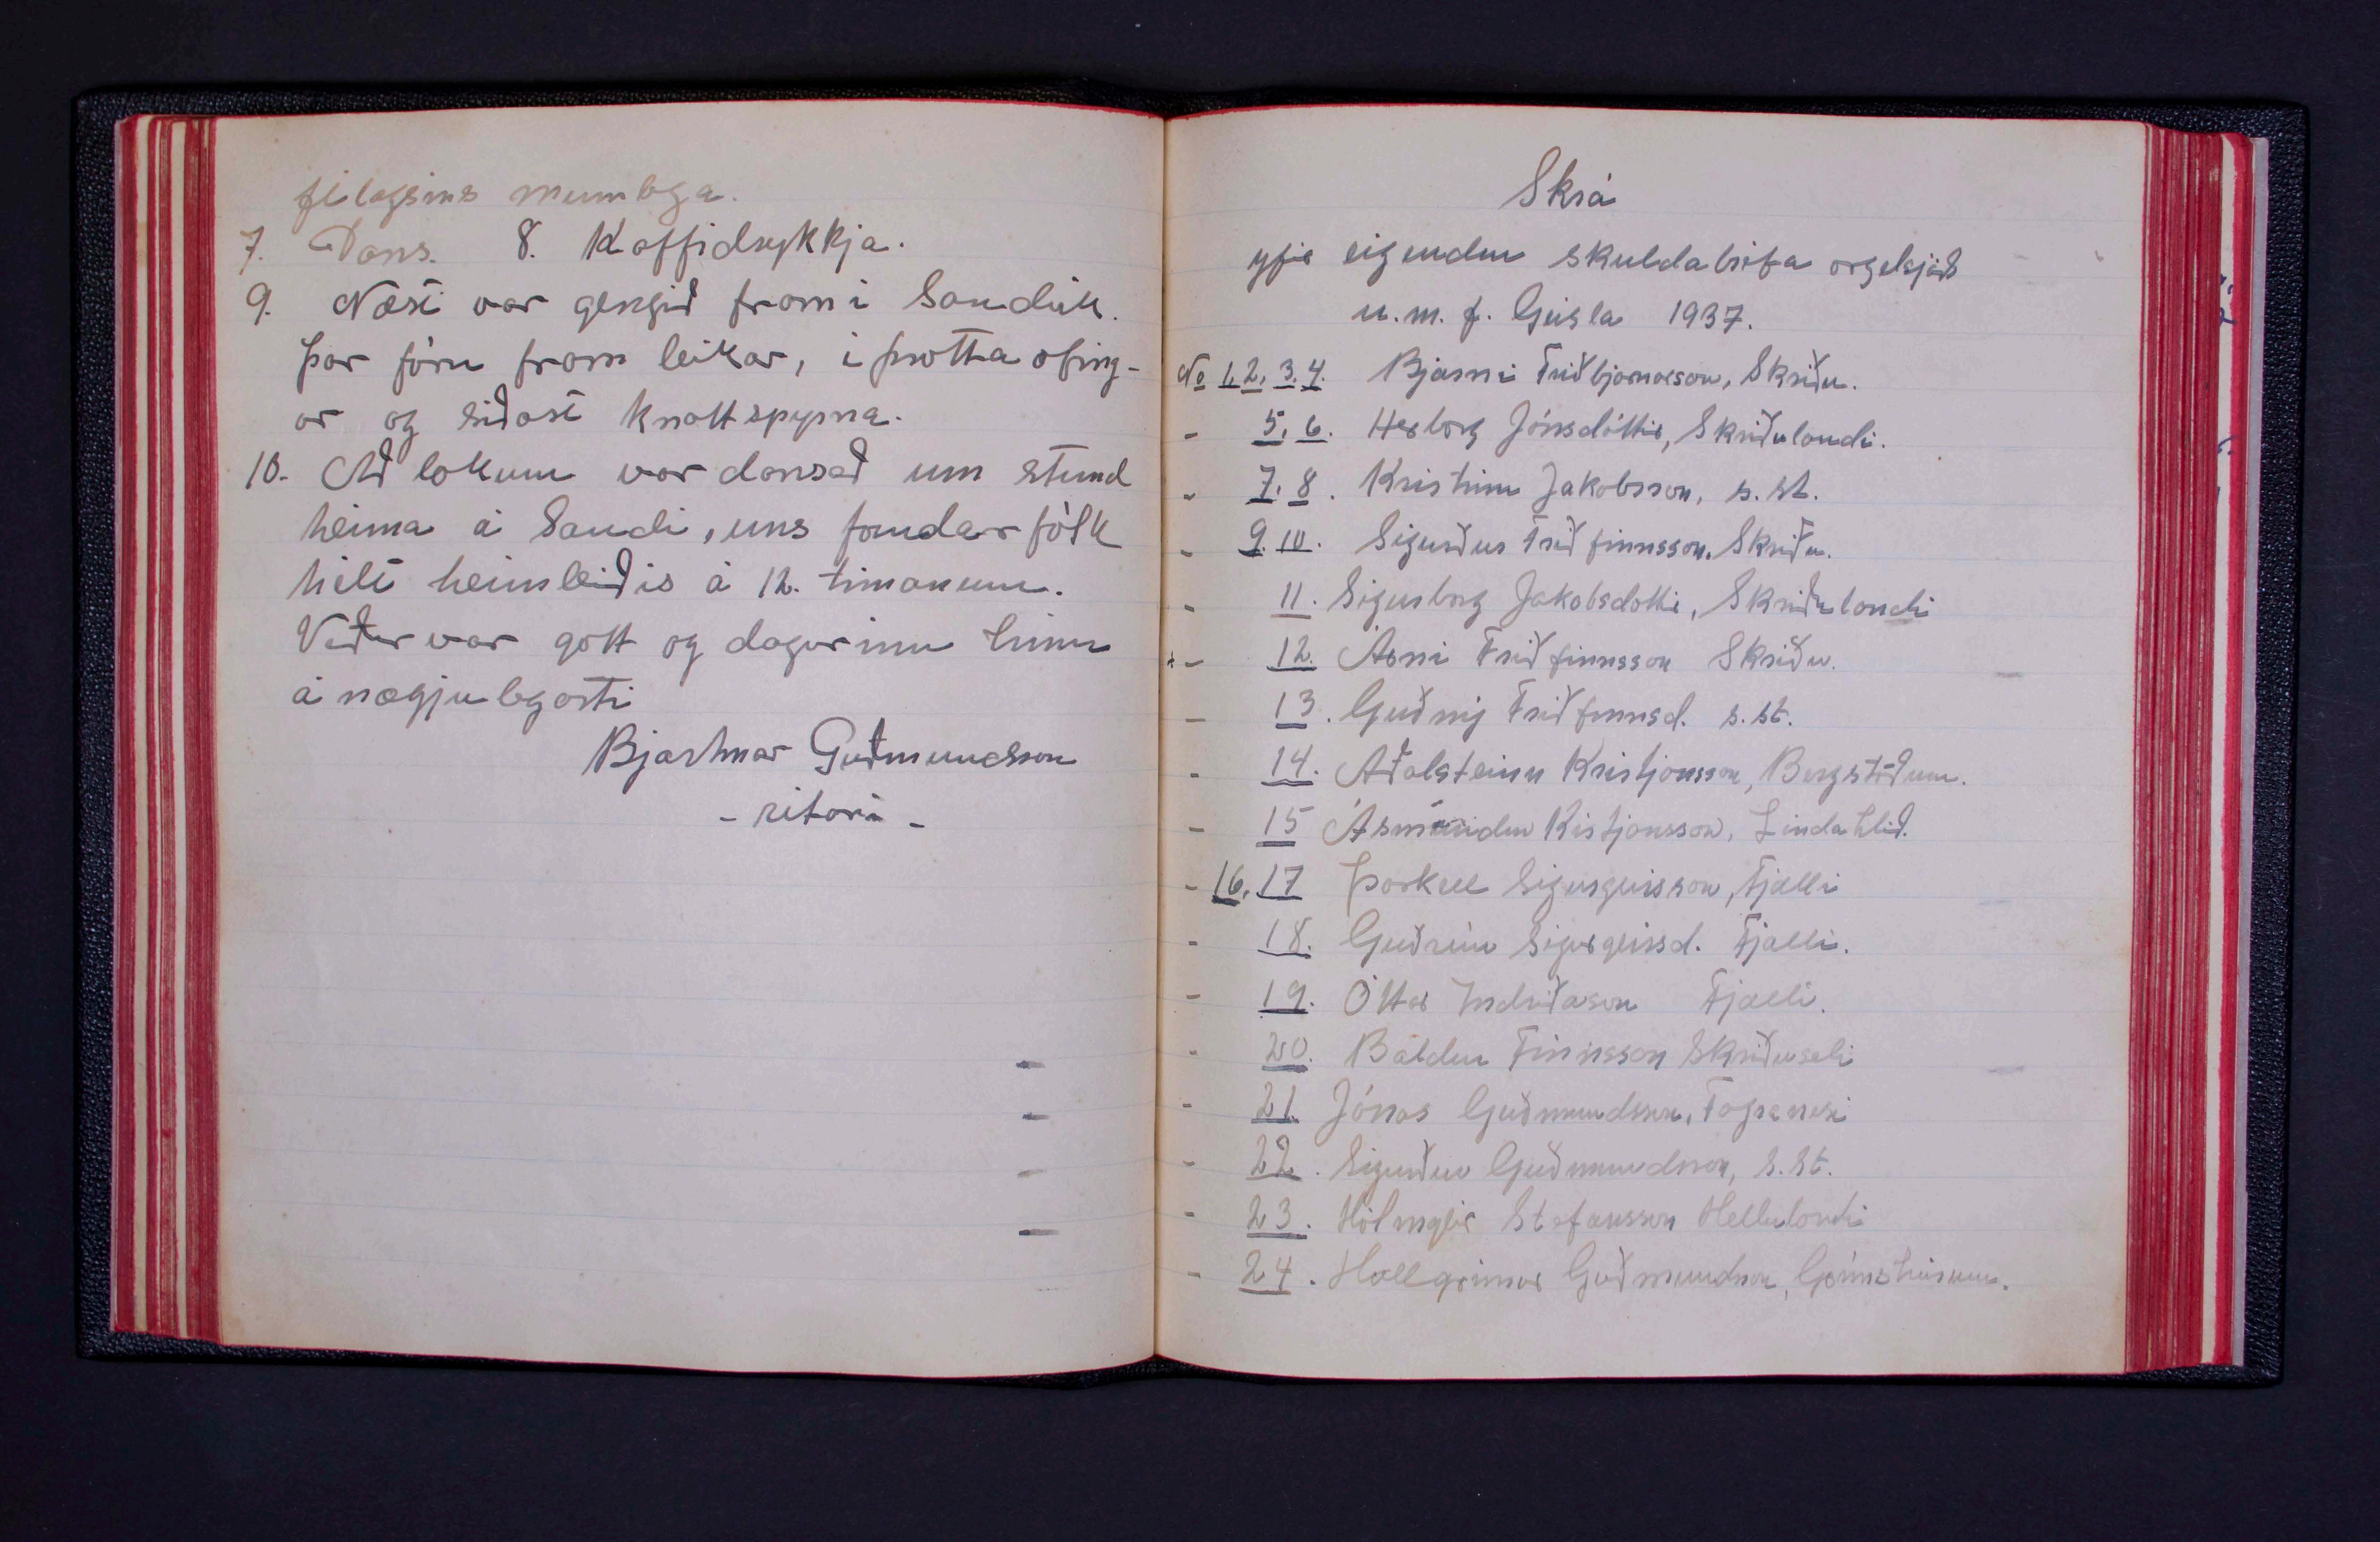 félagsins munnlega.
7. Dans. 8. Kaffidrykkja.
9. Næst var gengið fram í Sandvík.
Þar fóru fram leikar, íþróttaæfing-
ar og síðast knattspyrna.
10. Að lokum var dansað um stund
heima á Sandi, uns fundarfólk
hélt heimleiðis á 12. tímanum.
Veður var gott og dagurinn hinn
ánægjulegasti
Bjartmar Guðmundsson
- ritari -
Skrá
yfir eigendur skuldabréfa orgelsjóðs
u.m.f. Geisla 1937.
No 1, 2, 3. 4. Bjarni Friðbjarnarson, Skriðu.
- 5, 6. Herborg Jónsdóttir, Skriðulandi.
- 7. 8. Kristinn Jakobsson, s. st.
- 9. 10. Sigurður Friðfinnsson, Skriðu.
- 11. Sigurborg Jakobsdóttir, Skriðulandi
+ - 12. Árni Friðfinnsson Skriðu.
- 13. Guðný Friðfinnsd. s. st.
- 14. Aðalsteinn Kristjánsson, Bergstöðum.
- 15 Ásmundur Kistjánsson, Lindahlíð.
- 16, 17 Þorkell Sigurgeirsson, Fjalli
- 18. Guðrún Sigurgeirsd. Fjalli.
- 19. Óttar Indriðason Fjalli.
- 20. Baldur Finnsson Skriðuseli
- 21. Jónas Guðmundsson, Fagranesi
- 22. Sigurður Guðmundsson, s. st.
- 23. Hólmgeir Stefánsson Hellulandi
- 24. Hallgrímur Guðmundson, Grímshúsum.